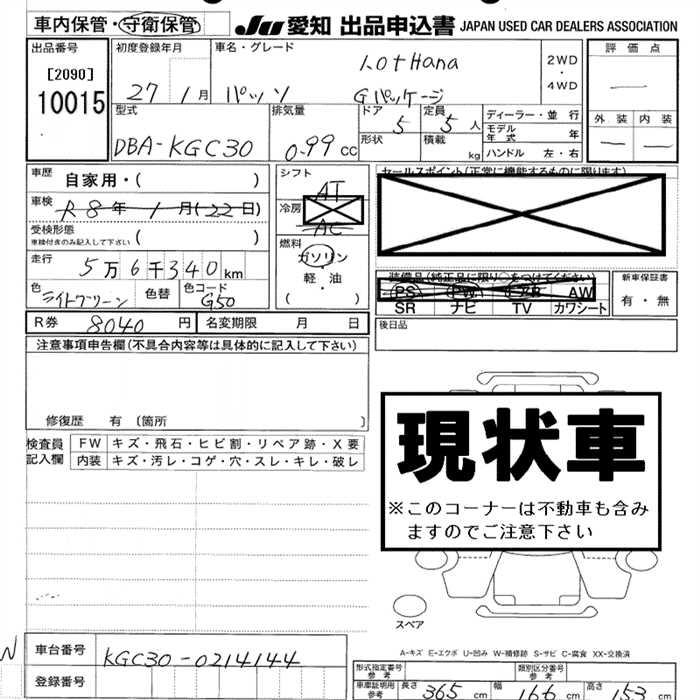 車内保管・守衛保管 JU 愛知 出品申込書 JAPAN USED CAR DEALERS ASSOCIATION
出品番号 初度登録年月 車名・グレード 評価点
[2090] 27 1月 パッソ +Hana Gパッケージ 2WD・4WD
10015 外装 内装
型式 排気量 ドア 定員 ディーラー・並行
DBA-KGC30 0.99 cc 5 5人 モデル年式 年
形状 積載 kg ハンドル 左・右
車歴 自家用・( ) シフト AT セールスポイント(正常に機能するものに限ります)
車検 R8年1月(22日) 冷房 AC
受検形態 車検付きのみ記入して下さい ( ) 燃料 ガソリン・軽・油 ( )
走行 5万6千340km 装備品(純正品に限り○をつけてください) 新車保証書
色 ライトグリーン 色替 色コード G50 PS PW AW 有・無
SR ナビ TV カワシート
R券 8040円 名変期限 月 日 後日品
注意事項申告欄(不具合内容等は具体的に記入して下さい)
修復歴 有 〔箇所 〕
検査員記入欄 FW キズ・飛石・ヒビ割・リペア跡・X要
内装 キズ・汚レ・コゲ・穴・スレ・キレ・破レ
現状車
※このコーナーは不動車も含み
ますのでご注意下さい
スペア
A-キズ E-エクボ U-凹み W-補修跡 S-サビ C-腐食 XX-交換済
N 車台番号 KGC30-0214144
登録番号
型式指定番号 参考 類別区分番号 参考
車庫証明用 参考 長さ 365 cm 幅 166 cm 高さ 153 cm